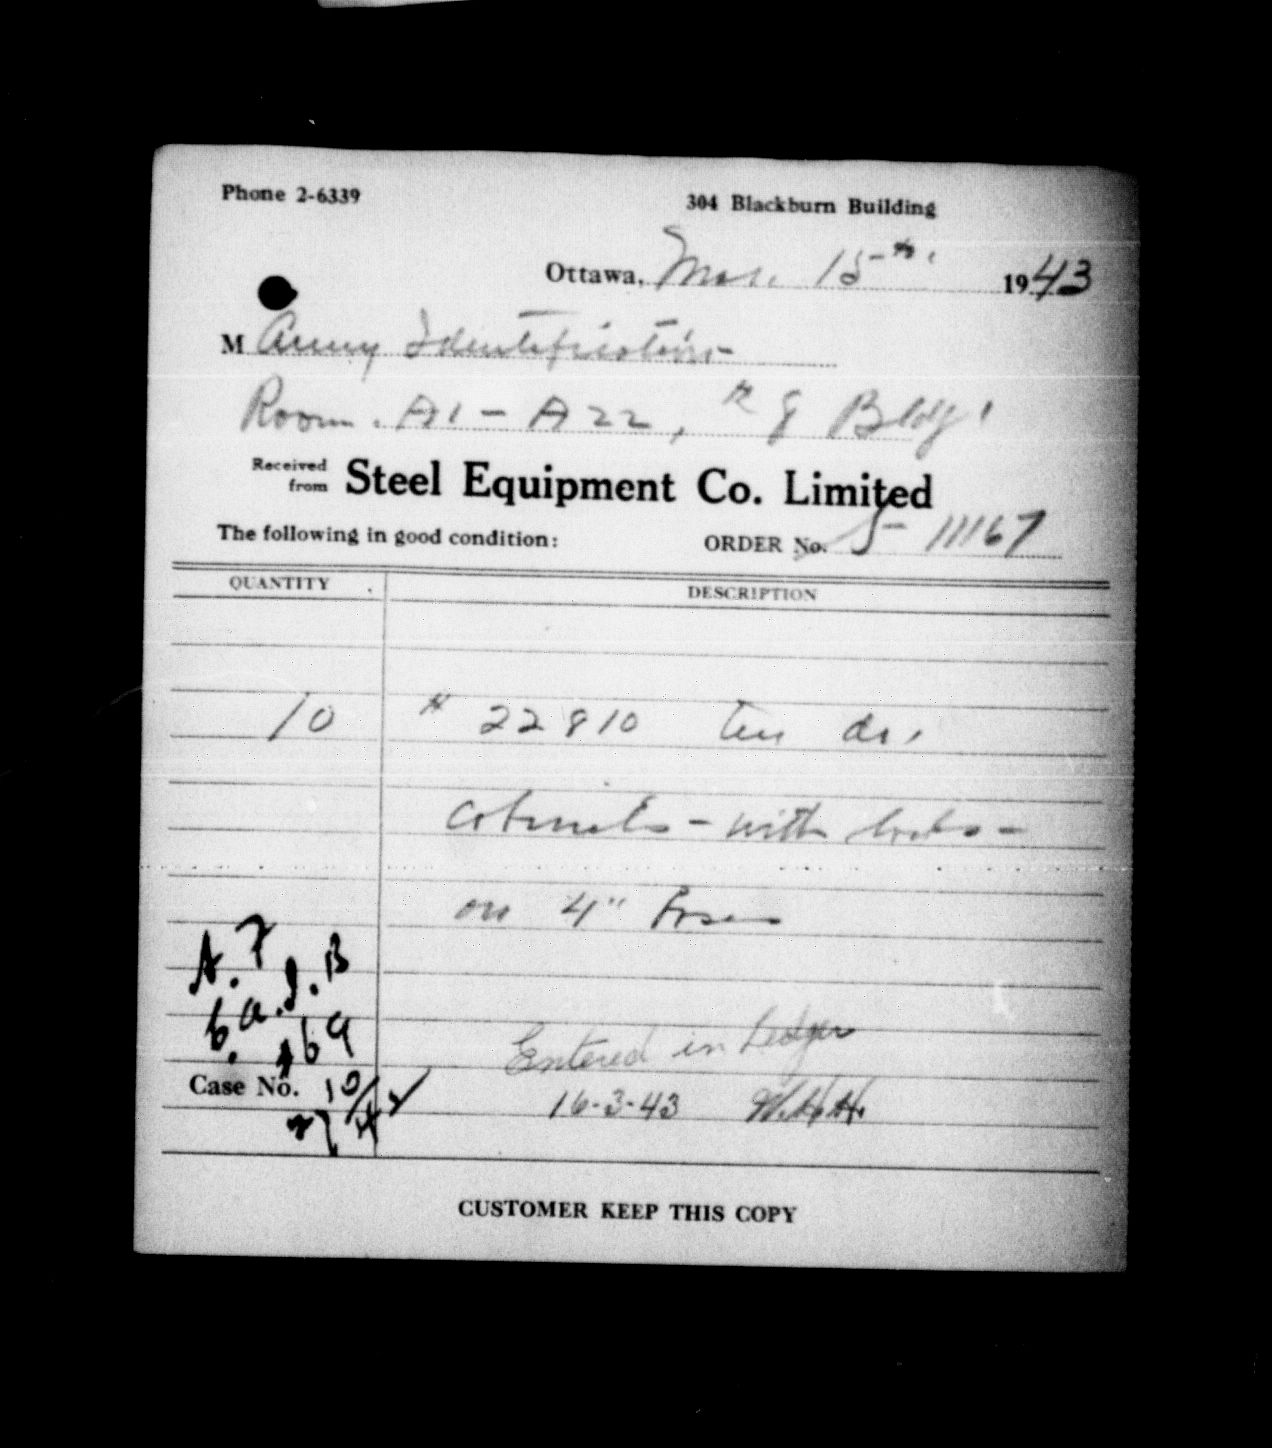 Phone 2-6339
304 Blackburn Building
Ottawa, Mar. 15th. 1943
M Army Identification
Room. A1 - A22, #8 Bldg.
Received from Steel Equipment Co. Limited
The following in good condition:
ORDER No. S- 11167
QUANTITY DESCRIPTION
10 # 22810 ten dr.
cabinets - with locks -
on 4" bases
Entered in Ledger
Case No.
16-3-43 W.H.H.
CUSTOMER KEEP THIS COPY